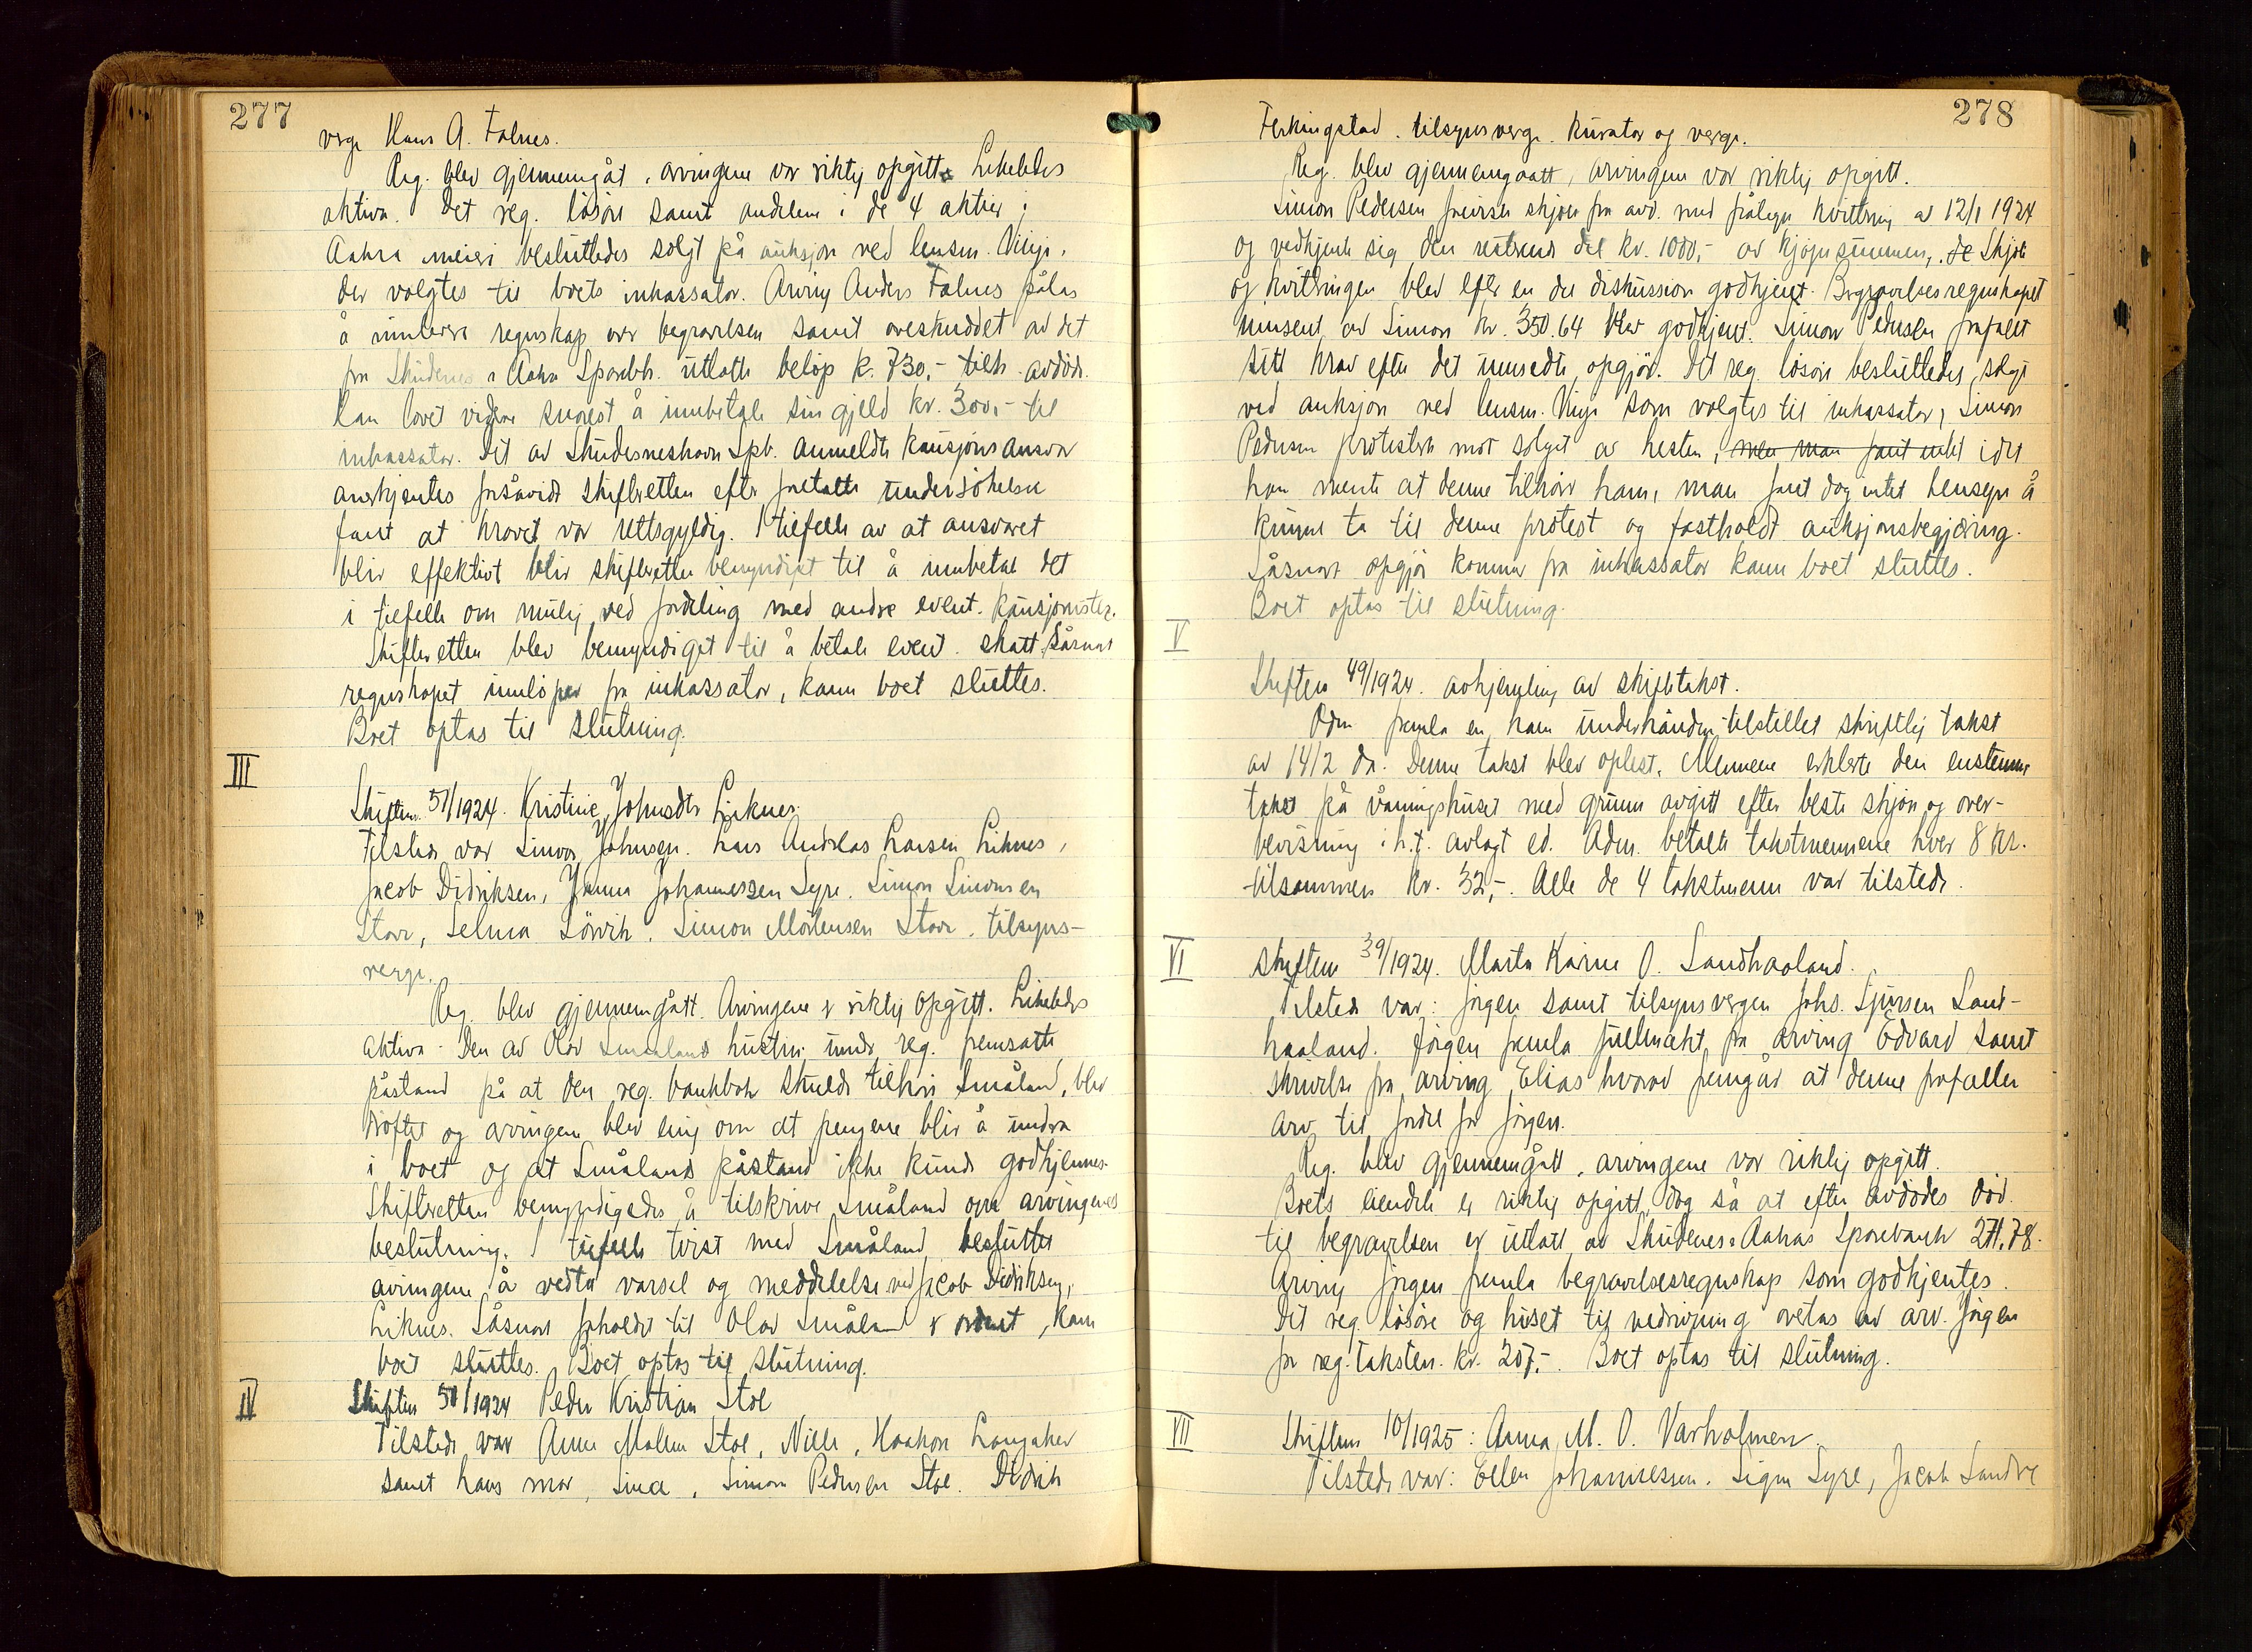 277
verge Hans A. Falnes.
Reg. blev gjennemgåt, arvingene var riktig opgitt. Likeledes
aktiva. Det reg. løsøre samt andelene i de 4 aktier i
Aakra meieri besluttedes solgt på auksjon ved lensm. Vinje.
der valgtes til boets inkassator. Arving Anders Falnes pålas
å innlevere regnskap over begravelsen samt overskuddet av det
fra Skudenes & Aakra Sparebk. utlatte beløp k. 730,- tilh. avdøde.
Han lovet videre snarest å innbetale sin gjeld kr. 300,- til
inkassator. Det av Skudesneshavn Spb. anmeldte kausjonsansvar
anerkjentes forsåvidt skifteretten efter foretatt undersøkelse
fant at kravet var rettsgyldig. I tilfelle av at ansvaret
blir effektivt blir skifteretten bemyndiget til å innbetale det
i tilfelle om mulig ved fordeling med andre event. kausjonister.
Skifteretten blev bemyndiget til å betale event. skatt. Såsnart
regnskapet innløper fra inkassator, kann boet sluttes.
Boet optas til slutning.
III
Skiftens 51/1924. Kristine Johnsdtr Liknes.
Tilstede var Simon Johnsen. Lars Andreas Larsen Liknes,
Jacob Didriksen, Johannessen Syre. Simon Simonsen
Stava, Selma Sörvik. Simon Mortensen Stava. tilsyns-
verge.
Reg. blev gjennemgått. Arvingene er riktig opgitt. Likeledes
aktiva. Den av Olav Smålands hustru under reg. fremsatte
påstand på at den reg. bankbok skulde tilhøre Småland, blev
drøftet og arvingene blev enig om at pengene blir å inndra
i boet og at Smålands påstand ikke kunde godkjennes.
Skifteretten bemyndigedes å tilskrive Småland om arvingenes
beslutning. I tilfelle tvist med Småland besluttet
arvingene å vedta varsel og meddelelse ved Jacob Didriksen,
Liknes. Såsnart forholdet til Olav Småland er ordnet, kann
boet sluttes. Boet optas til slutning.
IV
Skiftens 50/1924 Peder Kristian Stol
Tilstede var Anna Malene Stol, Nille, Haakon Langaker
samt hans mor, Sina, Simon Pedersen Stol. Didrik
278
Ferkingstad. tilsynsverge. Kurator og verge.
Reg. blev gjennemgaatt, arvingene var riktig opgitt.
Simon Pedersen foreviste skjøte fra avd. med pålagt kvittering av 12/1 1924
og vedkjente sig den resterende del kr. 1000,- av kjøpesummen, . Skjøte
og kvitteringen blev efter en del diskussion godkjent. Begravelsesregnskapet
innsent av Simon kr. 350.64 blev godkjent. Simon Pedersen frafalt
sitt krav efter det innsendte opgjør. Det reg. løsøre besluttedes solgt
ved auksjon ved lensm. Vinje som valgtes til inkassator, Simon
Pedersen protesterte mot salget av hesten, men man fant intet idet
han mente at denne tilhører ham, man fant dog intet hensyn å
kunne ta til denne protest og fastholdt auksjonsbegjæring.
Såsnart opgjør kommer fra inkassator kann boet sluttes.
Boet optas til slutning.
V
Skiftens 49/1924. avhjemling av skiftetakst.
Adm. fremla en ham underhånden tilstillet skriftlig takst
av 14/2 da. Denne takst blev oplest. Mennene erklærte den enstemmig
takst på våningshuset med grunn avgitt efter beste skjøn og over-
bevisning i h.t. avlagt ed. Adm. betalte takstmennene hver 8 kr.
tilsammen kr. 32,-. Alle de 4 takstmenn var tilstede.
VI
Skiftens 39/1924. Marta Karine O. Sandhaaland.
Tilstede var: Jørgen samt tilsynsvergen Johs. Sjursen Sand-
haaland. Jørgen fremla fullmakt fra arving Edvard samt
skrivelse fra arving Elias hvorav fremgår at denne frafaller
arv til fordel for Jørgen.
Reg. blev gjennemgått, arvingene var riktig opgitt.
Boets eiendele er riktig opgitt, dog så at efter avdødes død
til begravelsen er utlatt av Skudenes & Aakras Sparebank 271.78.
Arving Jørgen fremla begravelsesregnskap som godkjentes.
Det reg. løsøre og huset til nedrivning overtas av arv. Jørgen
for reg. taksten. kr. 207,-. Boet optas til slutning.
VII
Skiftens 10/1925: Anna M. O. Varholmen.
Tilstede var: Ellen Johannessen. Signe Syre, Jacob Sandve